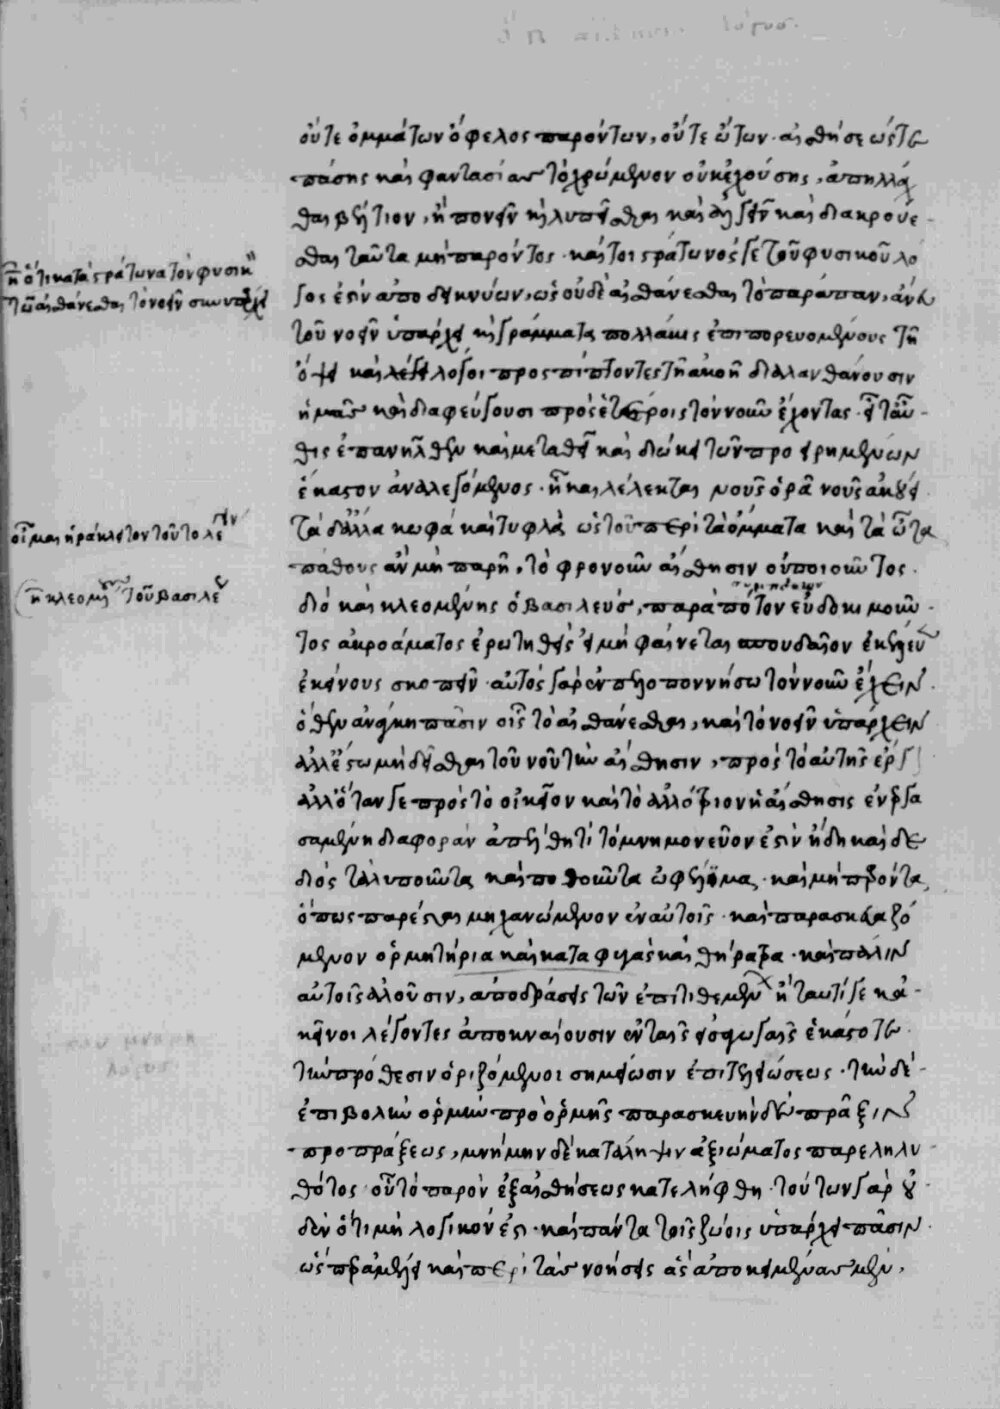 οὔτε ὀμμάτων ὄφελος παρόντων, οὔτε ὤτων· αἰσθήσεως τε
πάσης καὶ φαντασίας τὸ χρώμενον οὐκ ἐχούσης, ἀπηλλάχ
θαι βέλτιον, ἢ πονεῖν κὴ λυπεῖσθαι καὶ ἀλγεῖν καὶ διακρούε
σθαι ταῦτα μὴ παρόντος· καίτοι στράτωνός γε τοῦ φυσικοῦ λό
γος ἐστὶν ἀποδεικνύων, ὡς οὐδὲ αἰσθάνεσθαι τὸ παράπαν, ἄνευ
τοῦ νοεῖν ὑπάρχει κὴ γράμματα πολλάκις ἐπιπορευομένους τῇ
ὄψει καὶ λόγοι προσπίπτοντες τῇ ἀκοῇ διαλανθάνουσιν
ἡμᾶς καὶ διαφεύγουσι πρὸς ἑτέροις τὸν νοῦν ἔχοντας· εἶτ' αὖ
θις ἐπανῆλθεν καὶ μεταθεῖ καὶ διώκει τῶν προειρημένων
ἕκαστον ἀναλεγόμενος· ᾗ καὶ λέλεκται νοῦς ὁρᾷ νοῦς ἀκούει
τὰ δ' ἄλλα κωφὰ καὶ τυφλὰ ὡς τοῦ περὶ τὰ ὄμματα καὶ τὰ ὦτα
πάθους ἂν μὴ παρῇ, τὸ φρονοῦν αἴσθησιν οὐ ποιοῦντος·
διὸ καὶ κλεομένης ὁ βασιλεύς, παρὰ πότον εὐδοκιμοῦν
τος ἀκροάματος ἐρωτηθεὶς εἰ μὴ φαίνεται σπουδαῖον ἐκέλευ
ἐκείνους σκοπεῖν· αὐτὸς γὰρ ἐν πελοποννήσω τὸν νοῦν ἔχειν.
ὅθεν ἀνάγκη πᾶσιν οἷς τὸ αἰσθάνεσθαι, καὶ τὸ νοεῖν ὑπάρχειν
ἀλλ' ἔστω μὴ δεῖσθαι τοῦ νοῦ τὴν αἴσθησιν, πρὸς τὸ αὑτῆς ἔργ
ἀλλ' ὅταν γε πρὸς τὸ οἰκεῖον καὶ τὸ ἀλλότριον ἡ αἴσθησις ἐνεργα
σαμένη διαφορὰν ἀπέλθῃ τί τὸ μνημονεῦον ἐστὶν ἤδη καὶ δε
διὸς τὰ λυποῦντα καὶ ποθοῦντα ὠφέλιμα· καὶ μὴ παρόντα,
ὅπως παρέσται μηχανώμενον ἐν αὐτοῖς· καὶ παρασκευαζό
μενον ὁρμητήρια καὶ καταφυγὰς καὶ θήρατρα· καὶ πάλιν
αὐτοῖς ἁλοῦσιν, ἀποδράσεις τῶν ἐπιτιθεμένων ἢ ταυτί γε κα
κεῖνοι λέγοντες ἀποκναίουσιν ἐν ταῖς εἰσαγωγαῖς ἑκάστοτε
τὴν πρόθεσιν ὁριζόμενοι σημείωσιν ἐπιτελειώσεως· τὴν δὲ
ἐπιβολὴν ὁρμὴν πρὸ ὁρμῆς παρασκευὴν δὲ πρᾶξιν
προπράξεως, μνήμην δὲ κατάληψιν ἀξιώματος παρεληλυ
θότος οὗ τὸ παρὸν ἐξ αἰσθήσεως κατελήφθη· τούτων γὰρ οὐ
δὲν ὅτι μὴ λογικόν ἐστι· καὶ πάντα τοῖς ζώοις ὑπάρχει πᾶσιν
ὡς πρᾶμέλει καὶ περὶ τὰς νοήσεις ἃς ἀποκειμένας μὲν,
ὅτι κατὰ στράτωνα τὸν φυσικὸν
τῷ αἰσθάνεσθαι τὸ νοεῖν συνυπάρχει
οἶμαι ἡράκλειτον τοῦτο λέγειν
κλεομένους τοῦ βασιλέως